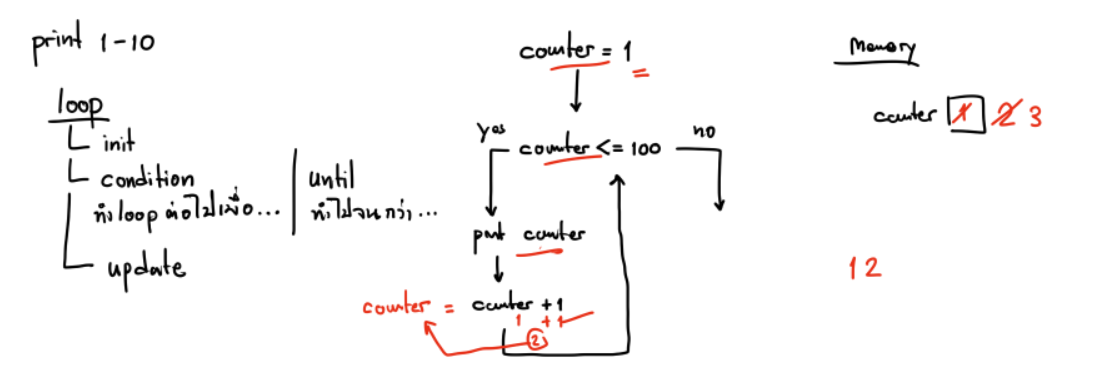 print 1-10
loop
init
condition
ทำ loop ต่อไปเมื่อ...
until
ทำไปจนกว่า...
update
counter = 1
yes
counter <= 100
no
print counter
counter = counter + 1
1 + 1
2
Memory
counter 1 2 3
1 2